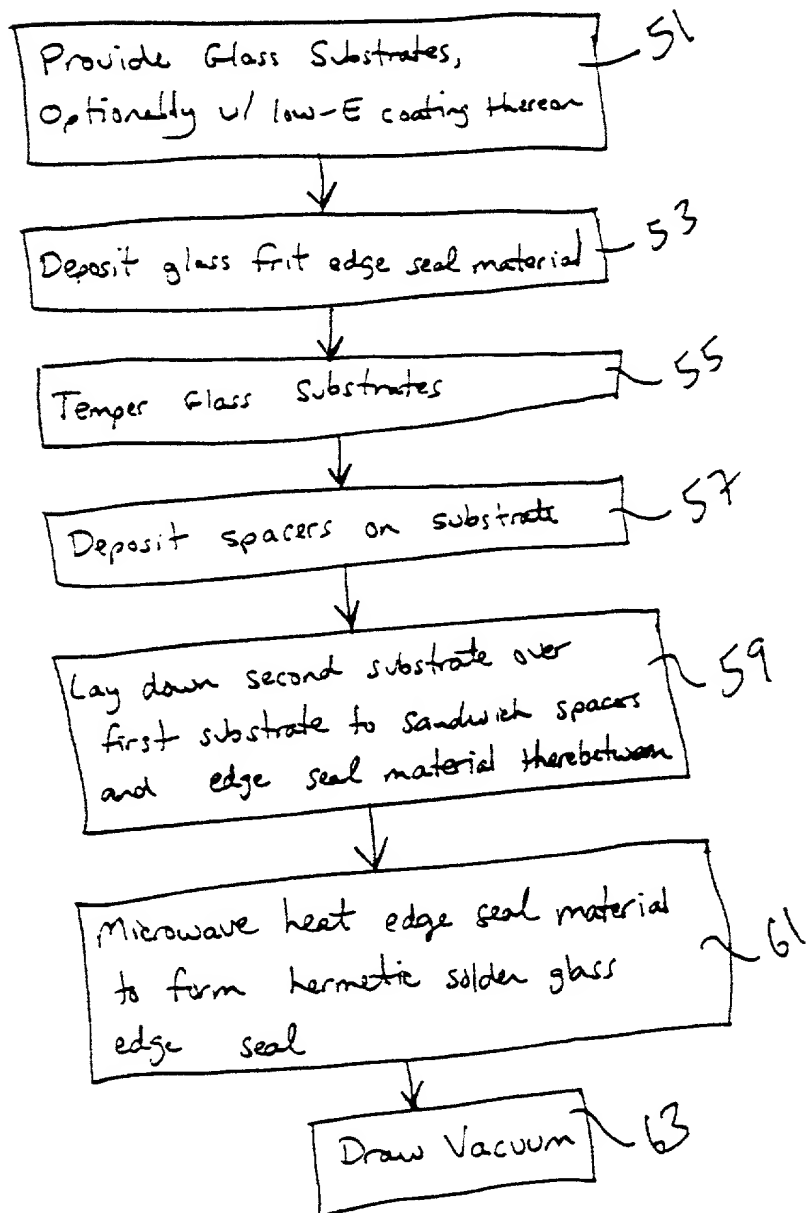 Provide Glass Substrates, 51
Optionally w/ low-E coating thereon
Deposit glass frit edge seal material 53
Temper Glass Substrates 55
Deposit spacers on substrate 57
Lay down second substrate over 59
first substrate to sandwich spacers
and edge seal material therebetween
Microwave heat edge seal material 61
to form hermetic solder glass
edge seal
Draw Vacuum 63